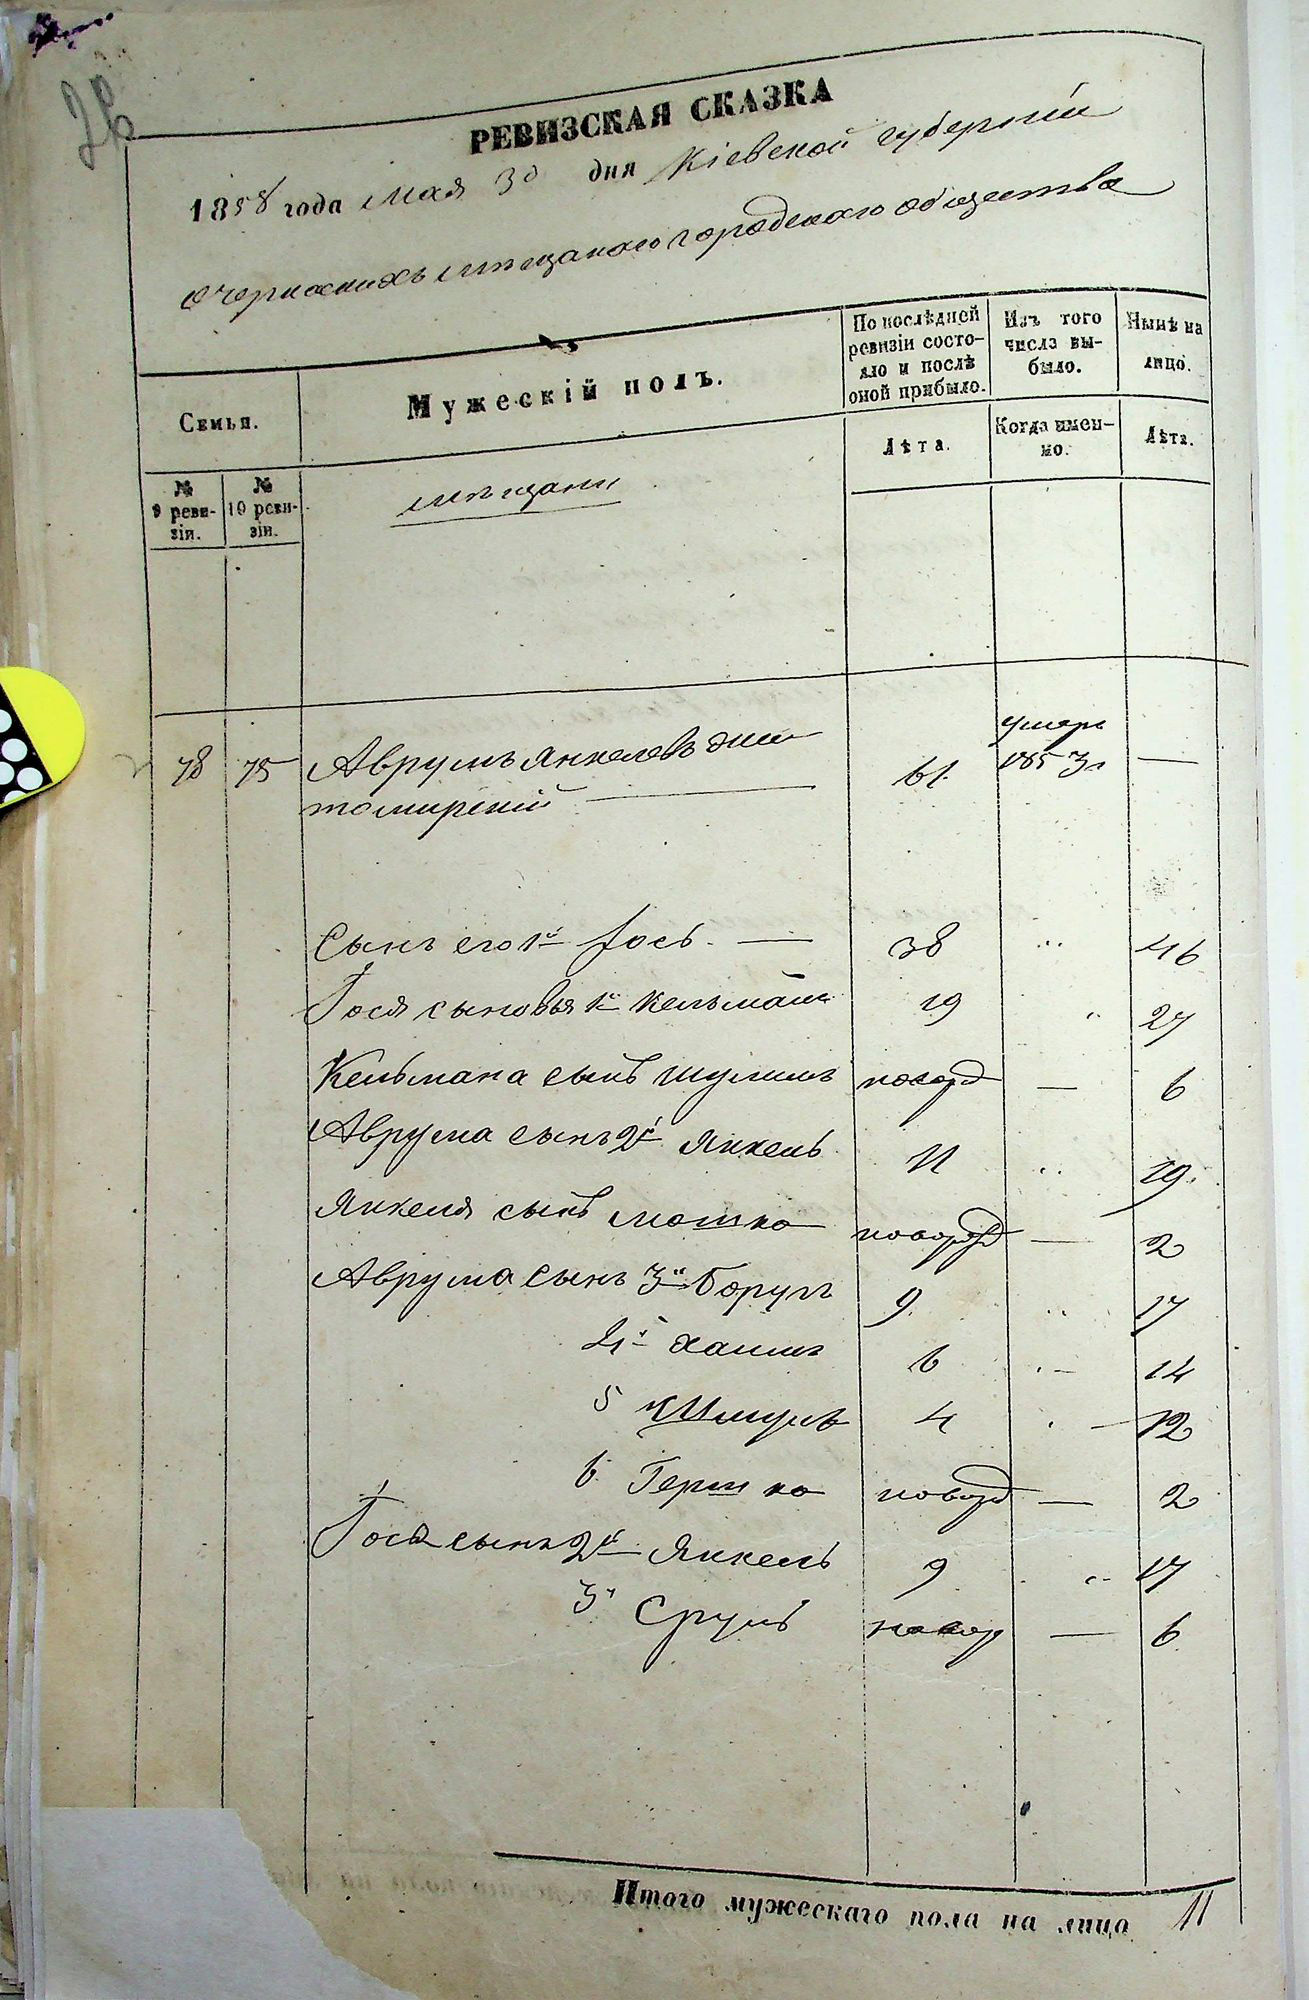 26
РЕВИЗСКАЯ СКАЗКА
1858 года мая 30 дня Кіевской губерніи
о черкаскихъ мѣщанаго городскаго общества
Семьи.
Мужескій полъ.
По послѣдней ревизіи состояло и послѣ оной прибыло.
Изъ того числа выбыло.
Нынѣ на лицо.
Лѣта.
Когда именно.
Лѣта.
№ 9 ревизіи.
№ 10 ревизіи.
мѣщани
78 75 Аврумъ Янкелевъ Жи 61 умеръ 1853 г —
томирскій
Сынъ его 1й Іось — 38 " 46
Іося сыновья 1й Кельманъ 19 " 27
Кельмана сынъ Шулимъ новор — 6
Аврума сынъ 2й Янкель 11 " 19
Янкеля сынъ Мошко новорд — 2
Аврума сынъ 3й Борухъ 9 " 17
4й Хаимъ 6 " 14
5й Шмуль 4 " 12
6 Гершко новорд — 2
Іося сынъ 2й Янкель 9 " 17
3й Сруль новор — 6
Итого мужескаго пола на лицо 11